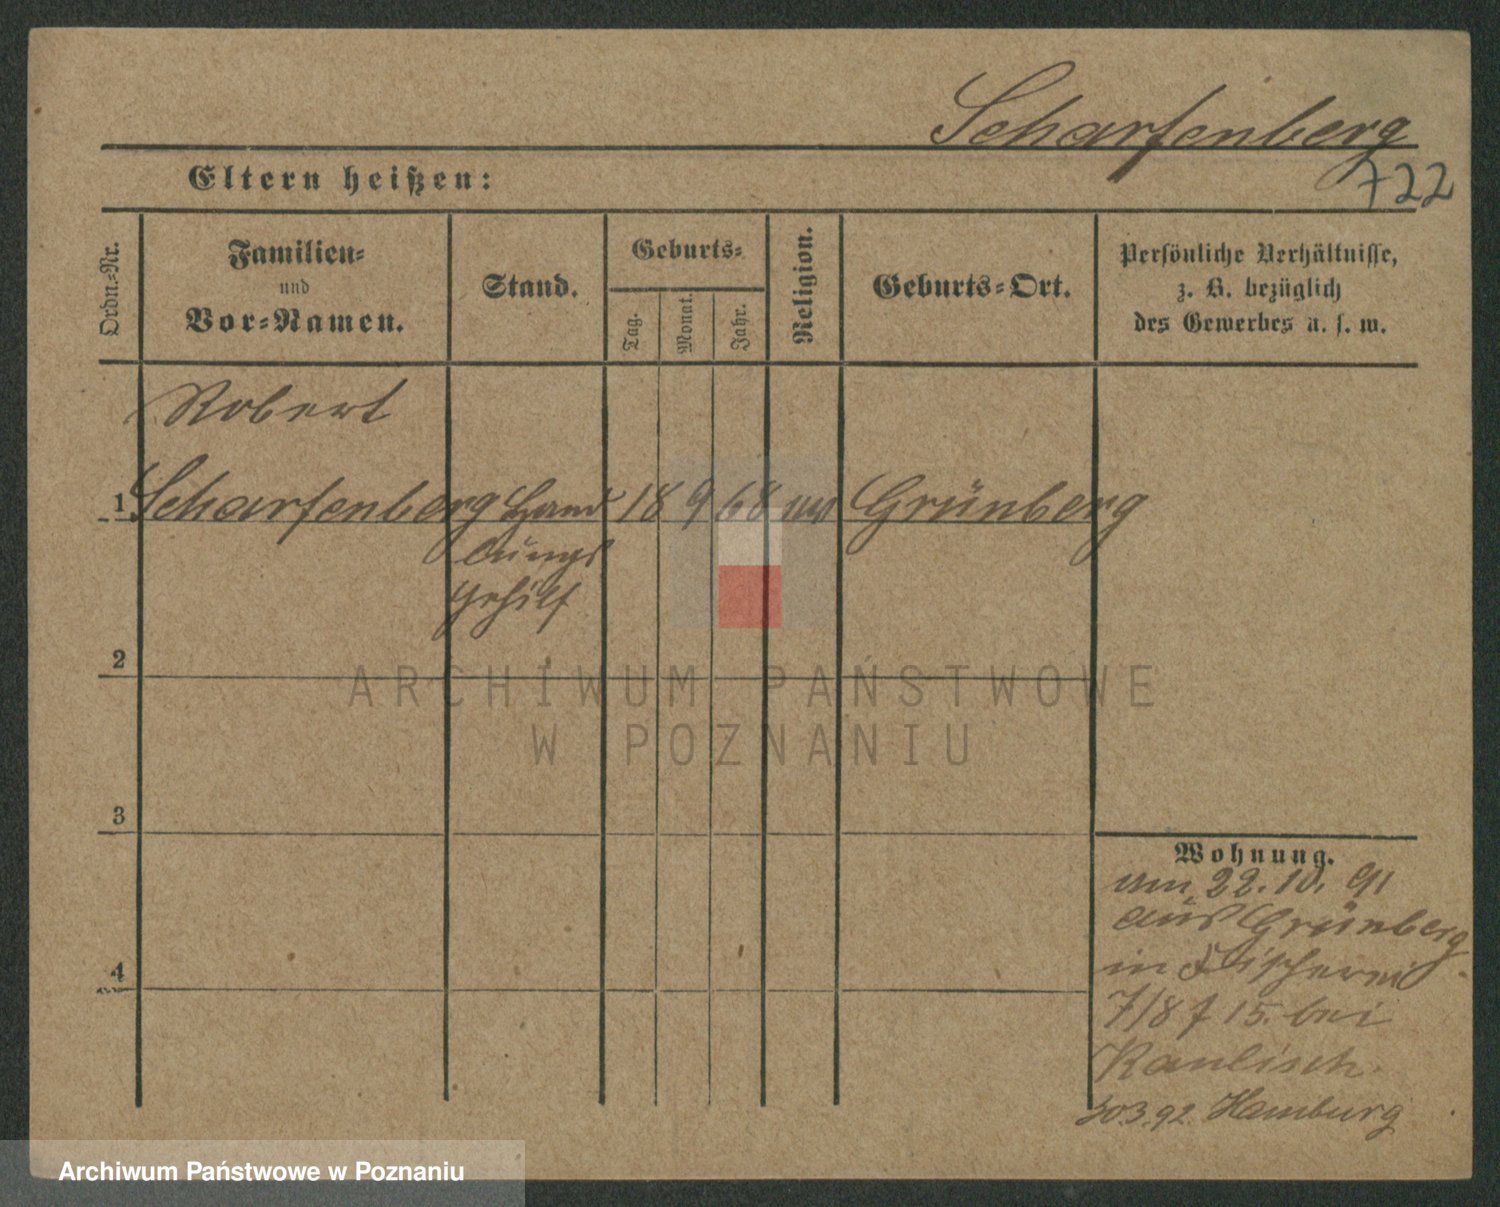 Scharfenberg
722
Eltern heißen:
Ordn.-Nr.
Familien-
und
Vor-Namen.
Stand.
Geburts-
Tag.
Monat.
Jahr.
Religion.
Geburts-Ort.
Persönliche Verhältnisse,
z. B. bezüglich
des Gewerbes u. s. w.
Robert
1 Scharfenberg Hand 18 9 68 Grünberg
lungs
gehilf
2
ARCHIWUM PAŃSTWOWE
W POZNANIU
3
Wohnung.
am 22. 10. 91
aus Grünberg
in Fischerei
7/8 15. bei
30.3.92. Hamburg
4
Archiwum Państwowe w Poznaniu